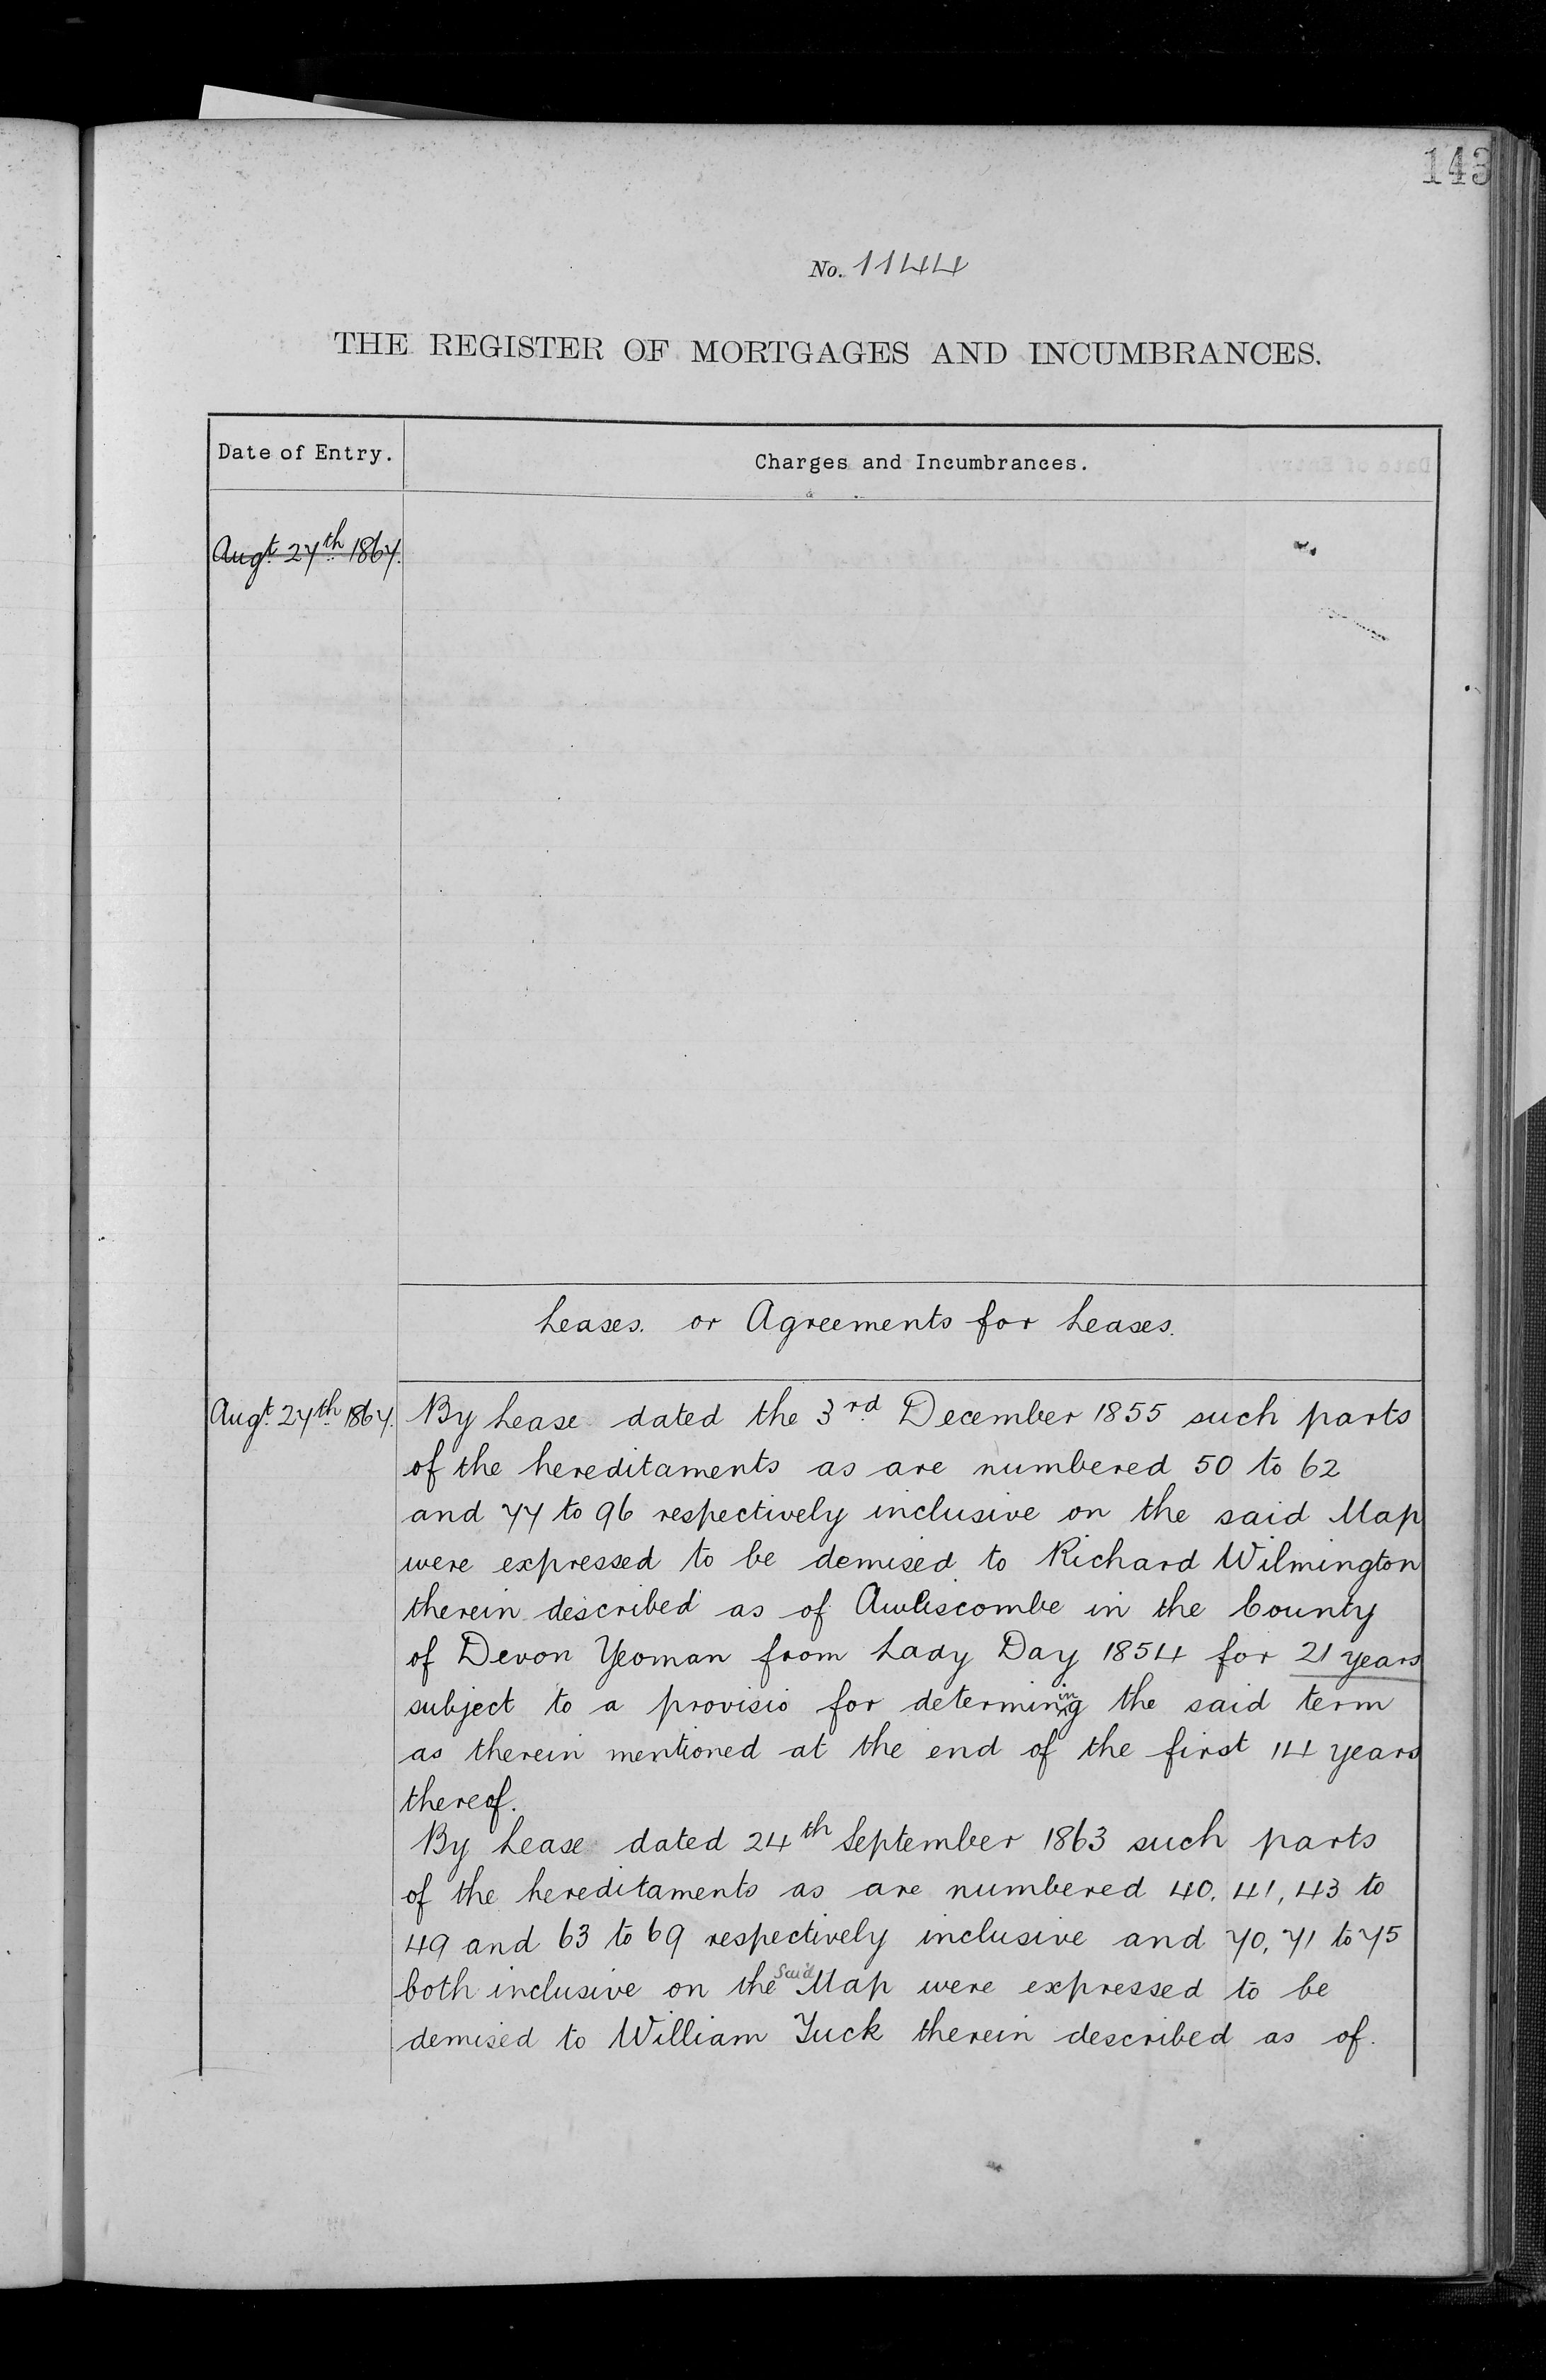 143
No. 1144
THE REGISTER OF MORTGAGES AND INCUMBRANCES.
Date of Entry.
Charges and Incumbrances.
Augt. 27th 1867.
Leases. or Agreements for Leases.
Augt. 27th 1867.
By Lease dated the 3rd December 1855 such parts
of the hereditaments as are numbered 50 to 62
and 77 to 96 respectively inclusive on the said Map
were expressed to be demised to Richard Wilmington
therein described as of Awliscombe in the County
of Devon Yeoman from Lady Day 1854 for 21 years
subject to a provisio for determining the said term
as therein mentioned at the end of the first 14 years
thereof.
By Lease dated 24th September 1863 such parts
of the hereditaments as are numbered 40. 41, 43 to
49 and 63 to 69 respectively inclusive and 70, 71 to 75
both inclusive on the said Map were expressed to be
demised to William Tuck therein described as of.